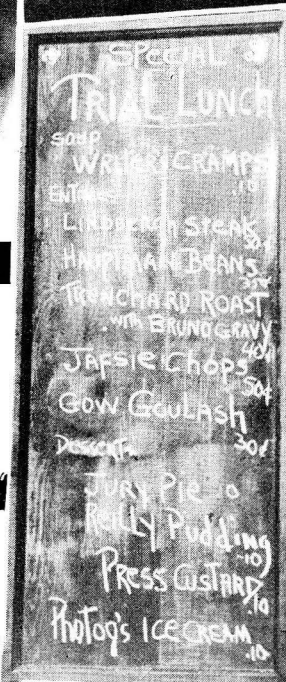 SPECIAL
TRIAL LUNCH
SOUP
WRITER CRAMPS
.10
ENTREE
LINDBERGH STEAK
50¢
HAUPTMAN BEANS
35¢
TRENCHARD ROAST
WITH BRUNO GRAVY
40¢
JAFSIE CHOPS
50¢
GOW GOULASH
30¢
DESSERT
JURY PIE 10
REILLY PUDDING
-10
PRESS CUSTARD
.10
PHOTOG'S ICE CREAM
.10